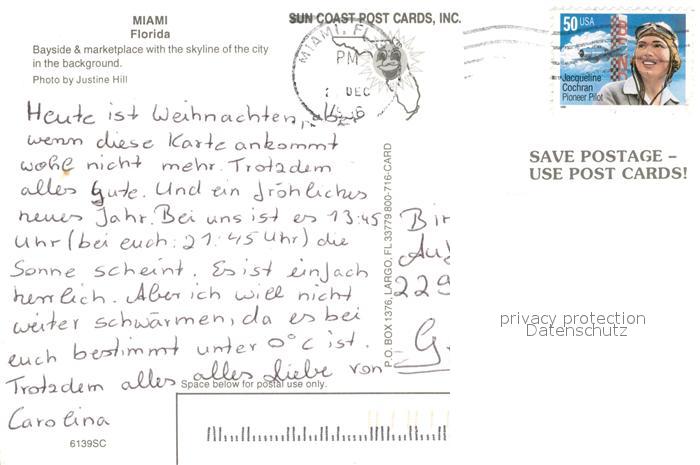 MIAMI
Florida
Bayside & marketplace with the skyline of the city
in the background.
Photo by Justine Hill
SUN COAST POST CARDS, INC.
MIAMI, FL
PM
DEC
50 USA
Jacqueline
Cochran
Pioneer Pilot
SAVE POSTAGE –
USE POST CARDS!
Heute ist Weihnachten, aber
wenn diese Karte ankommt
wohl nicht mehr. Trotzdem
alles Gute. Und ein fröhliches
neues Jahr. Bei uns ist es 13:45
Uhr (bei euch: 21:45 Uhr) die
Sonne scheint. Es ist einfach
herrlich. Aber ich will nicht
weiter schwärmen, da es bei
euch bestimmt unter 0°C ist.
Trotzdem alles alles Liebe von
Carolina
P.O. BOX 1376, LARGO, FL 33779 800-716-CARD
229
G.
privacy protection
Datenschutz
Space below for postal use only.
6139SC